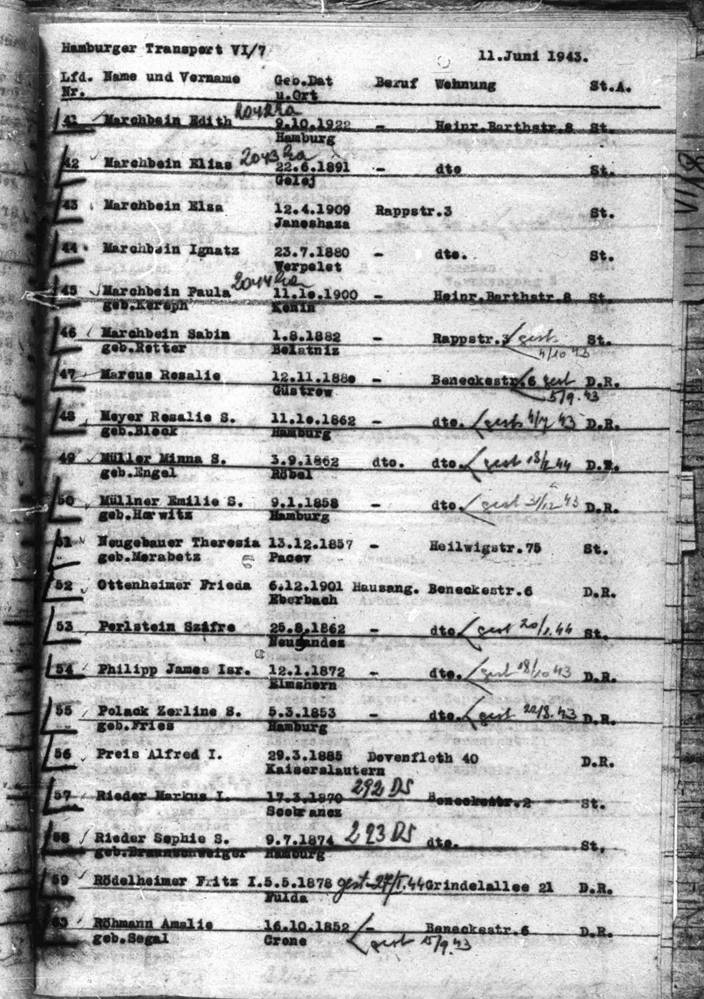 Hamburger Transport VI/7 11.Juni 1943.
Lfd. Name und Vorname Geb.Dat Beruf Wohnung St.A.
Nr. u.Ort
41 Marchbein Edith 9.10.1922 - Heinr.Barthstr.8 St.
Hamburg
42 Marchbein Elias 22.6.1891 - dto St.
Golej
43 Marchbein Elsa 12.4.1909 Rappstr.3 St.
Janoshaza
44 Marchbein Ignatz 23.7.1880 - dto. St.
Verpelet
45 Marchbein Paula 11.10.1900 - Heinr.Barthstr.8 St.
geb.Korsph Konin
46 Marchbein Sabin 1.8.1882 - Rappstr.3 gest St.
geb.Rotter Belatniz 4/10 43
47 Marcus Rosalie 12.11.1880 - Beneckestr.6 gest D.R.
Güstrow 5/9.43
48 Meyer Rosalie S. 11.10.1862 - dto. gest 4/7 43 D.R.
geb.Block Hamburg
49 Müller Minna S. 3.9.1862 dto. dto. gest 18/2 44 D.R.
geb.Engel Röbel
50 Müllner Emilie S. 9.1.1858 - dto. gest 31/12 43 D.R.
geb.Horwitz Hamburg
51 Neugebauer Theresia 13.12.1857 - Heilwigstr.75 St.
geb.Morabetz Pacov
52 Ottenheimer Frieda 6.12.1901 Hausang. Beneckestr.6 D.R.
Eberbach
53 Perlstein Szifre 25.8.1862 - dto gest 20/1.44 St.
Neusandez
54 Philipp James Isr. 12.1.1872 - dto. gest 18/10 43 D.R.
Elmshorn
55 Polack Zerline S. 5.3.1853 - dto. gest 22/8.43 D.R.
geb.Fries Hamburg
56 Preis Alfred I. 29.3.1885 Dovenfleth 40 D.R.
Kaiserslautern
57 Rieder Markus I. 17.3.1870 292 DS Beneckestr.2 St.
58 Rieder Sophie S. 9.7.1874 293 DS dto. St.
geb.Braunschweiger Hamburg
59 Rödelheimer Fritz I.5.5.1878 gest 27/1.44 Grindelallee 21 D.R.
Fulda
Röhmann Amalie 16.10.1852 - Beneckestr.6 D.R.
geb.Segal Crone gest 15/9.43